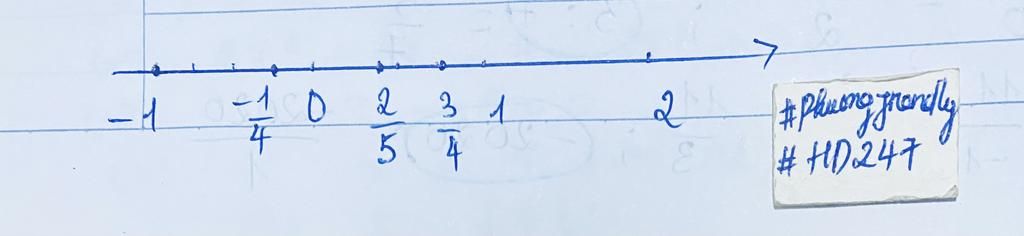 -1 -1/4 0 2/5 3/4 1 2
#Phuongfrendly
#HD247